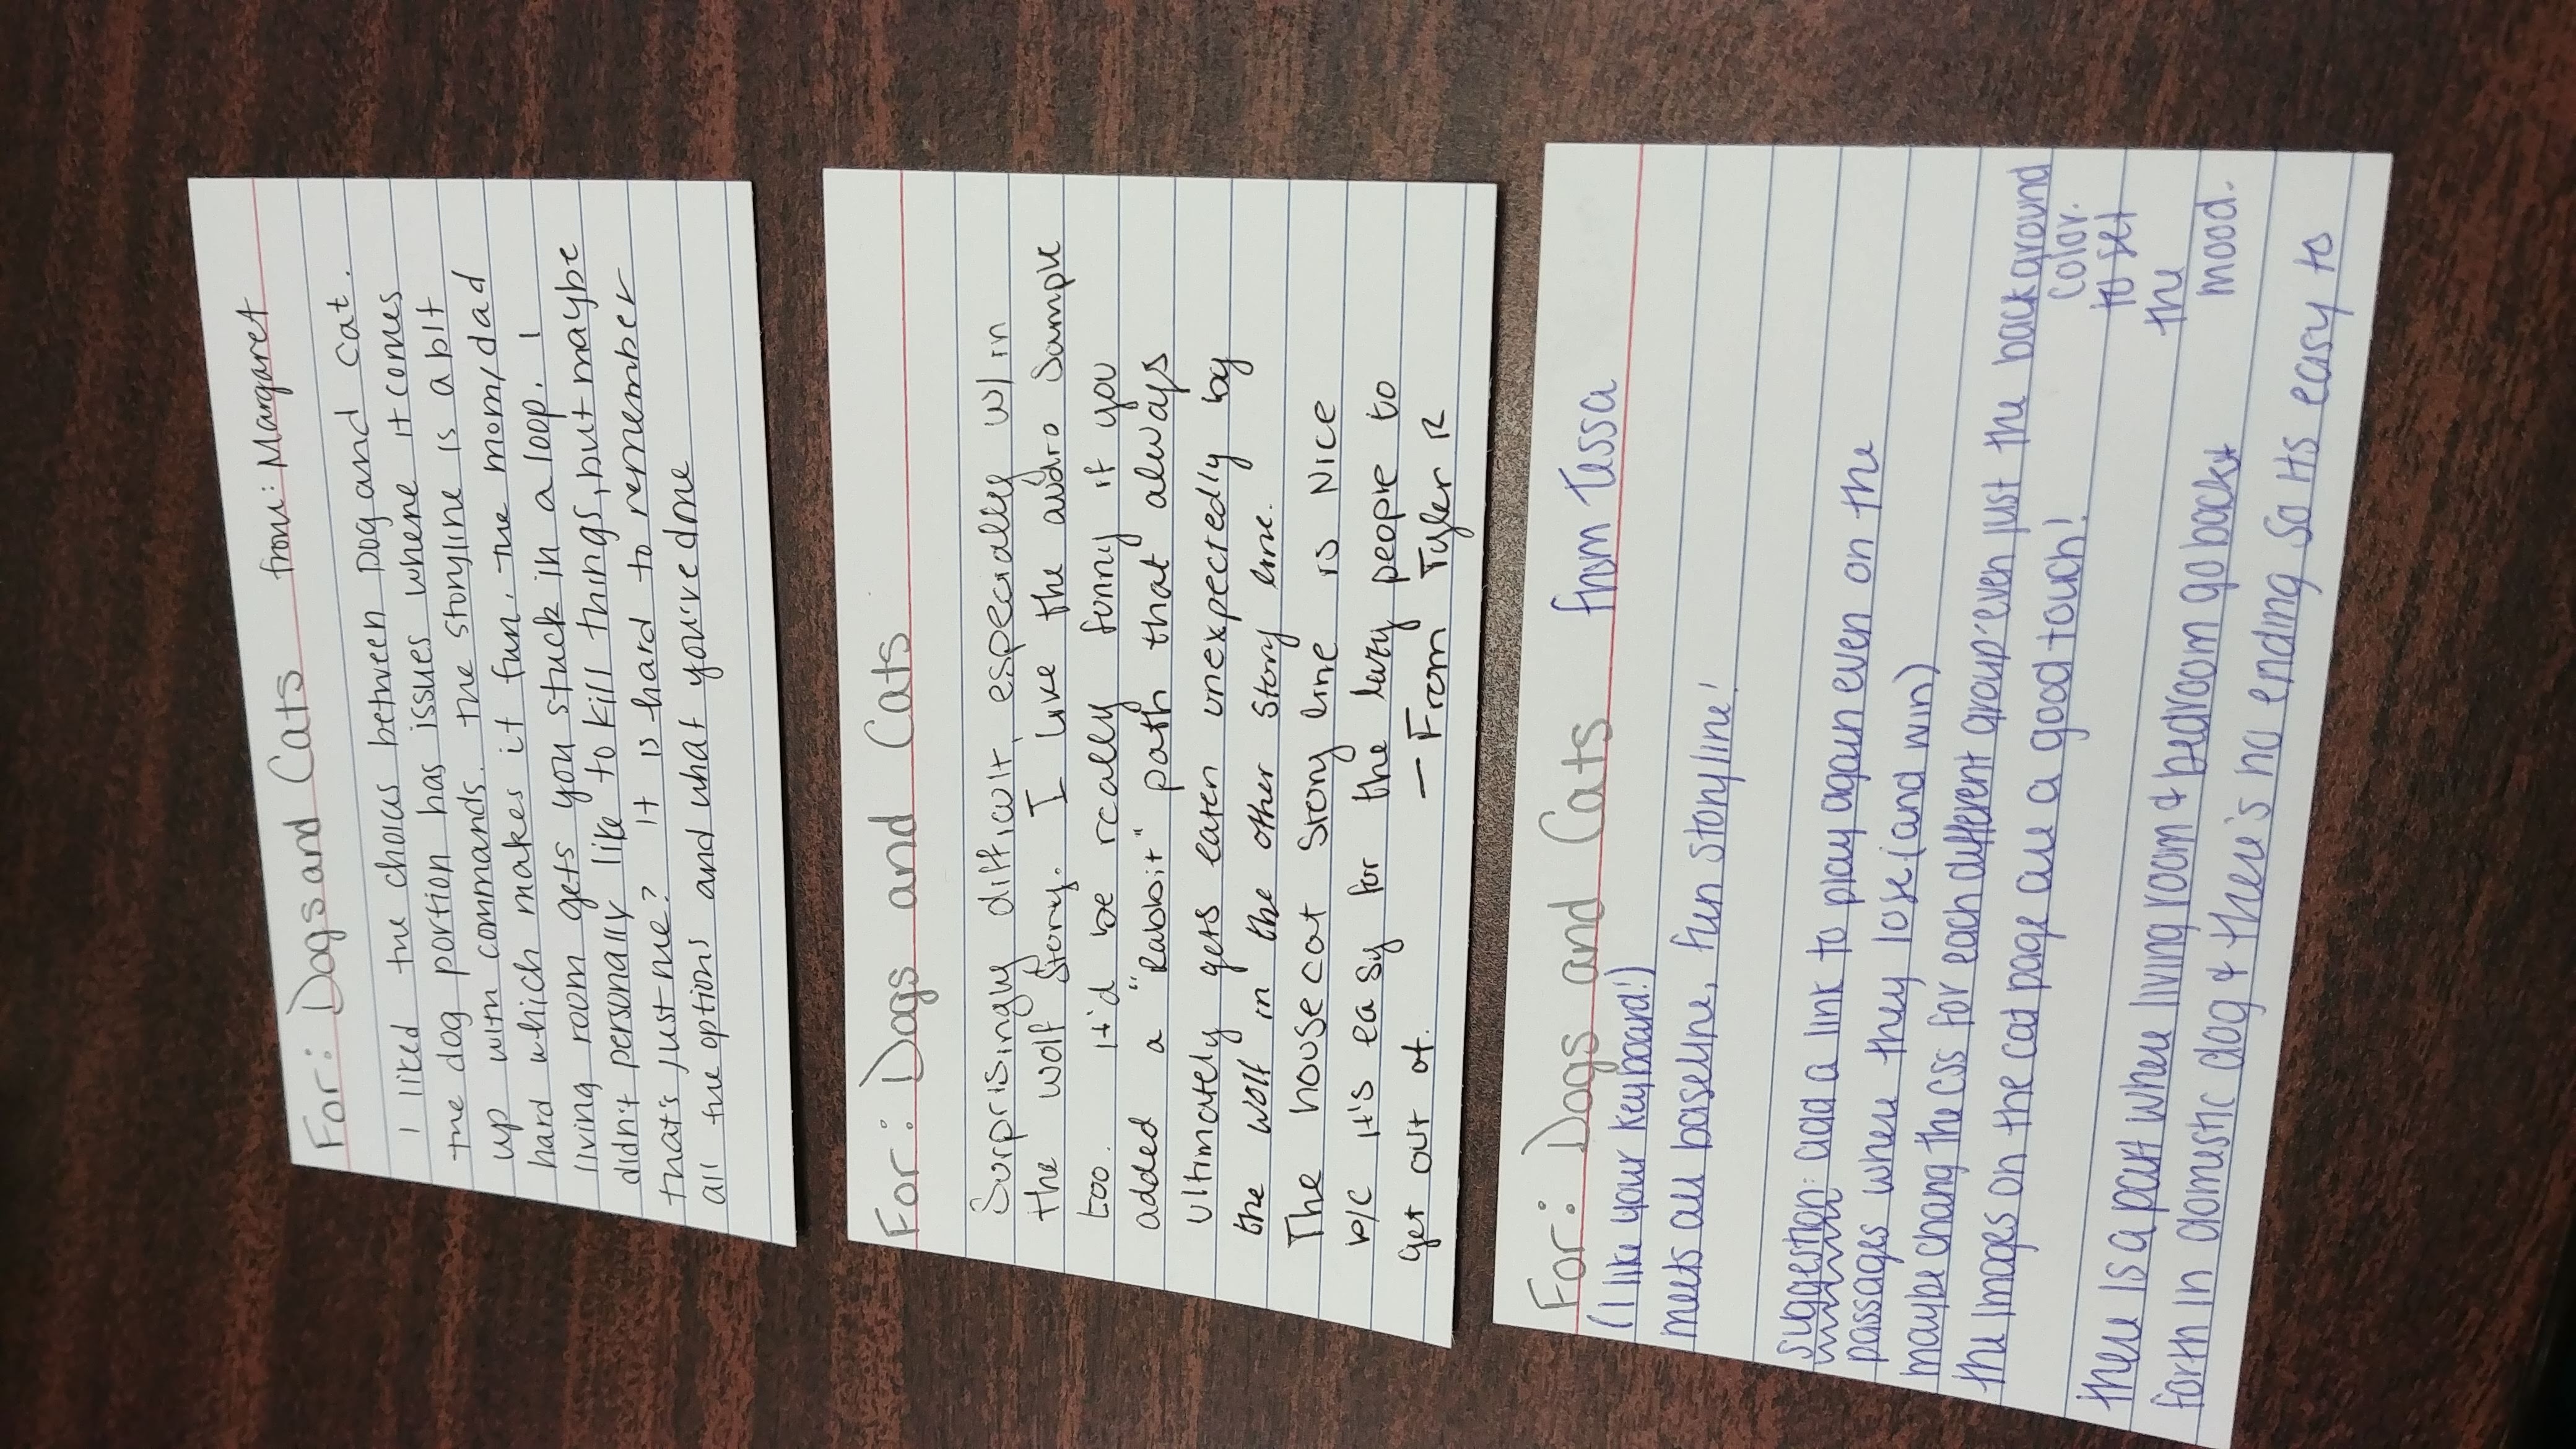 For: Dogs and Cats from: Margaret
I liked the choices between Dog and Cat.
the dog portion has issues where it comes
up with commands. the storyline is a bit
hard which makes it fun. The mom/dad
living room gets you stuck in a loop. I
didn't personally like to kill things, but maybe
that's just me? It is hard to remember
all the options and what you've done
For: Dogs and Cats
Surprisingly difficult, especially w/in
the wolf story. I like the audio sample
too. It'd be really funny if you
added a "Rabbit" path that always
ultimately gets eaten unexpectedly by
the wolf in the other story line.
The housecat story line is Nice
b/c it's easy for the lazy people to
get out of. — From Tyler R
For: Dogs and Cats from Tessa
(I like your keyboard!)
meets all baseline, fun storyline!
suggestion: add a link to play again even on the
passages where they lose (and win)
maybe chang the css for each different group-even just the background
color.
to set
the
mood.
the images on the cat page are a good touch!
there is a part where living room & bedroom go back &
forth in domestic dog & there's no ending so its easy to